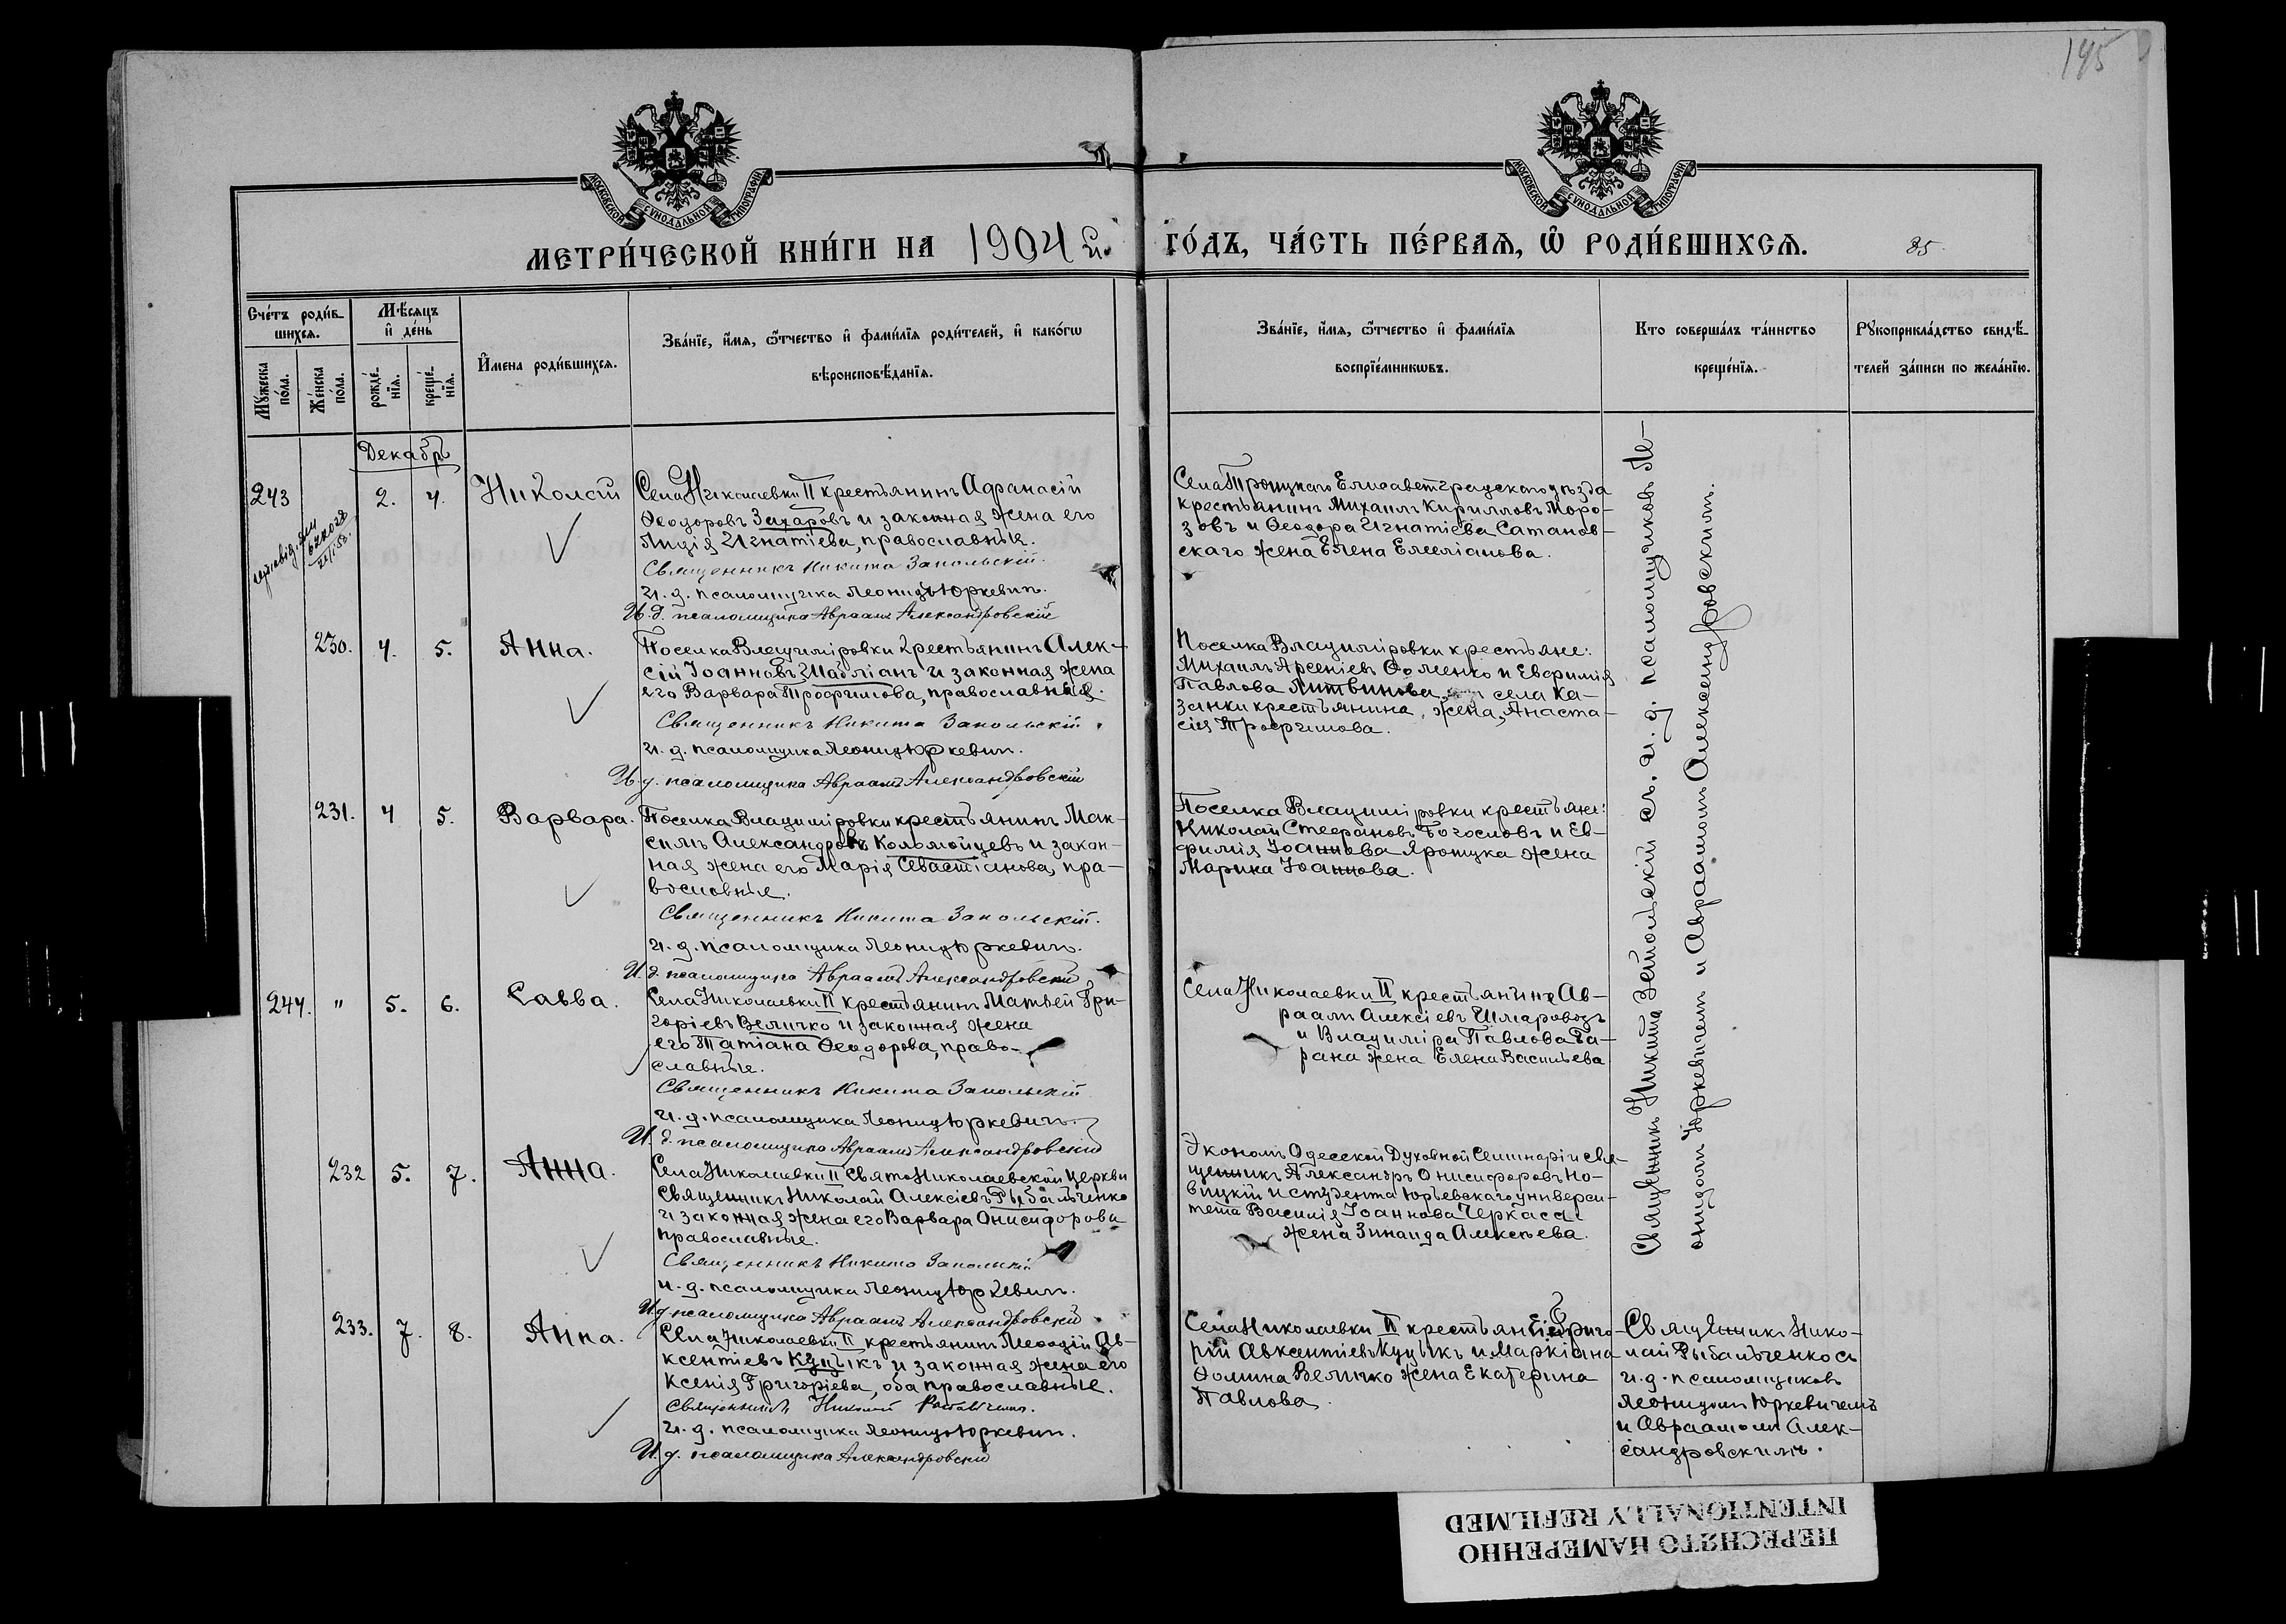 195
МОСКОВСКОЙ СѴНОДАЛЬНОЙ ТИПОГРАФІИ
МОСКОВСКОЙ СѴНОДАЛЬНОЙ ТИПОГРАФІИ
МЕТРИ́ЧЕСКОЙ КНИ́ГИ НА 1904 г. ГО́ДЪ, ЧА́СТЬ ПЕ́РВАѦ, Ѿ РОДИ́ВШИХСѦ. 85
Сче́тъ роди́в-
шихсѧ.
Мꙋжеска по́ла.
Же́нска по́ла.
Мѣ́сѧцъ
и҆ де́нь
рожде́-
нїѧ.
креще́-
нїѧ.
И҆мена роди́вшихсѧ.
Зва́нїе, и҆́мѧ, ѻ҆́тчество и҆ фами́лїѧ роди́телей, и҆ како́гѡ
вѣроисповѣ́данїѧ.
Зва́нїе, и҆́мѧ, ѻ҆́тчество и҆ фами́лїѧ
воспрїе́мникѡвъ.
Кто соверша́лъ та́инство
креще́нїѧ.
Рꙋкоприкла́дство свидѣ́-
телей за́писи по жела́нїю.
Декабрь
243
2. 4. Николай
Села Николаевки II крестьянинъ Афанасій
Ѳеодоровъ Захаровъ и законная жена его
Лидія Игнатіева, православные.
Священникъ Никита Запольскій.
И. д. псаломщика Леонидъ Юркевичъ.
И. д. псаломщика Авраамъ Александровскій
Села Троицкаго Елисаветградскаго уѣзда
крестьянинъ Михаилъ Кирилловъ Моро-
зовъ и Ѳеодора Игнатіева Сатанов-
скаго жена Елена Емеліанова.
230. 4. 5. Анна.
Поселка Владиміровки крестьянинъ Алек-
сій Іоанновъ Шабліанъ и законная жена
его Варвара Трофимова, православные.
Священникъ Никита Запольскій.
И. д. псаломщика Леонидъ Юркевичъ.
И. д. псаломщика Авраамъ Александровскій
Поселка Владиміровки крестьяне:
Михаилъ Арсеніевъ Ѳоменко и Евфимія
Павлова Литвинова села Ка-
занки крестьянина, жена, Анаста-
сія Трофимова.
231. 4 5. Варвара.
Поселка Владиміровки крестьянинъ Мак-
симъ Александровъ Коломойцевъ и закон-
ная жена его Марія Севастіанова, пра-
вославные.
Священникъ Никита Запольскій.
И. д. псаломщика Леонидъ Юркевичъ.
И. д. псаломщика Авраамъ Александровскій
Поселка Владиміровки крестьяне:
Николай Стефановъ Богословъ и Ев-
фимія Іоаннова Ярощука жена
Марина Іоаннова.
244. " 5. 6. Савва.
Села Николаевки II крестьянинъ Матвей Гри-
горіевъ Величко и законная жена
его Татіана Ѳеодорова, право-
славные.
Священникъ Никита Запольскій
И. д. псаломщика Леонидъ Юркевичъ.
И. д. псаломщика Авраамъ Александровскій
Села Николаевки II крестьянинъ Ав-
раамъ Алексіевъ Шмаровозъ
и Владиміра Павлова Та-
рана жена Елена Васильева
232 5. 7. Анна.
Села Николаевки II Свято Николаевской церкви
Священникъ Николай Алексіевъ Рыбальченко
и законная жена его Варвара Онисифорова
православные.
Священникъ Никита Запольскій
И. д. псаломщика Леонидъ Юркевичъ.
И. д. псаломщика Авраамъ Александровскій
Экономъ Одесской Духовной Семинаріи свя-
щенникъ Александръ Онисифоровъ Но-
вицкій и студента Юрьевскаго универси-
тета Василія Іоаннова Черкаса
жена Зинаида Алексѣева.
233. 7. 8. Анна.
Села Николаевки II крестьянинъ Меѳодій Ав-
ксентіевъ Куцыкъ и законная жена его
Ксенія Григоріева, оба православные.
Священникъ Николай Рыбальченко.
И. д. псаломщика Леонидъ Юркевичъ.
И. д. псаломщика Александровскій
Села Николаевки II крестьяне: Григо-
рій Авксентіевъ Куцыкъ и Маркіана
Ѳомина Величко жена Екатерина
Павлова.
Священникъ Никита Запольскій съ. и. д. псаломщиковъ Ле-
онидомъ Юркевичемъ и Авраамомъ Александровскимъ.
Священникъ Нико-
лай Рыбальченко съ
и. д. псаломщиковъ
Леонидомъ Юркевичемъ
и Авраамомъ Алек-
сандровскимъ.
ПЕРЕСНЯТО НАМЕРЕННО
INTENTIONALLY REFILMED